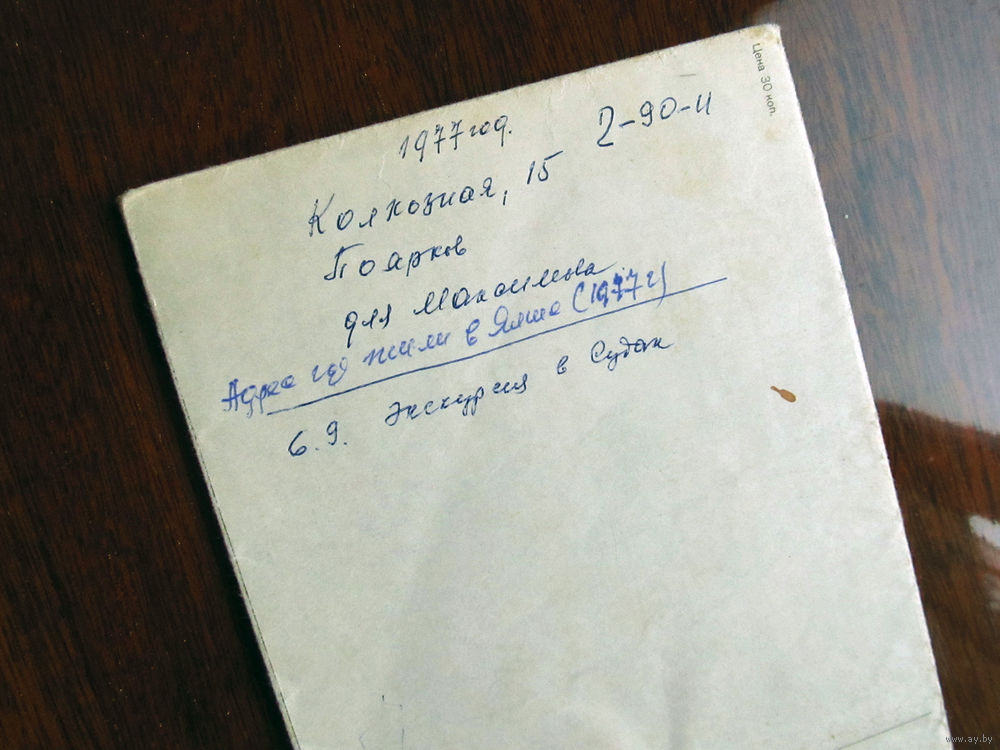 Цена 30 коп.
1977 год.
2-90-11
Колхозная, 15
Поарков
для Максимова
Адрес где жили в Ялте (1977 г)
6.9. Экскурсия в Судак
www.ay.by